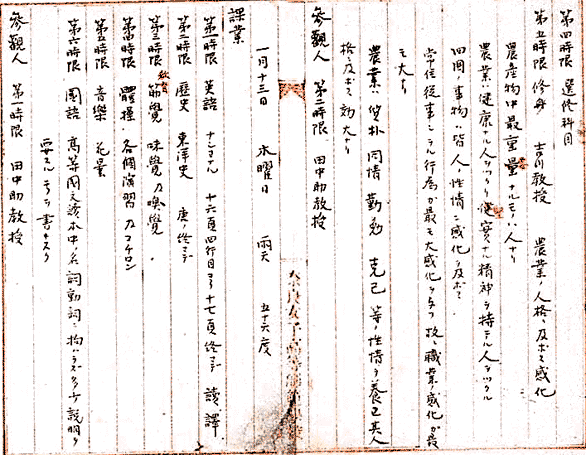 第四時限 選修科目
第五時限 修身 吉田教授 農業ノ人格ニ及ボス感化
農産物中最重量ナルモノハ人ナリ
農業ハ健康ナル人ヲツクリ健実ナル精神ヲ持テル人ヲツクル
四囲ノ事物ハ皆人ノ性情ニ感化ヲ及ボス
常住従事シテル行為ガ最モ大感化ヲ与フ 故ニ職業ノ感化ガ最
モ大ナリ
農業ハ質朴 同情 勤勉 克己 等ノ性情ヲ養ヒ其人
格ニ及ボス効大ナリ
参観人 第二時限 田中助教授
奈良女子高等師範学校
一月十三日 水曜日 雨天 五十六度
課業
第一時限 英語 ナショナル 十六頁四行目ヨリ十七頁終マデ 読譯
第二時限 歴史 東洋史 唐ノ終マデ
第三時限 筋覚 味覚及嗅覚
第四時限 體操 各個演習及
第五時限 音樂 花景
第六時限 國語 高等國文讀本中ノ名詞動詞ニ拘ハラズ多少説明ヲ
要スルモノヲ書キヌク
参観人 第一時限 田中助教授